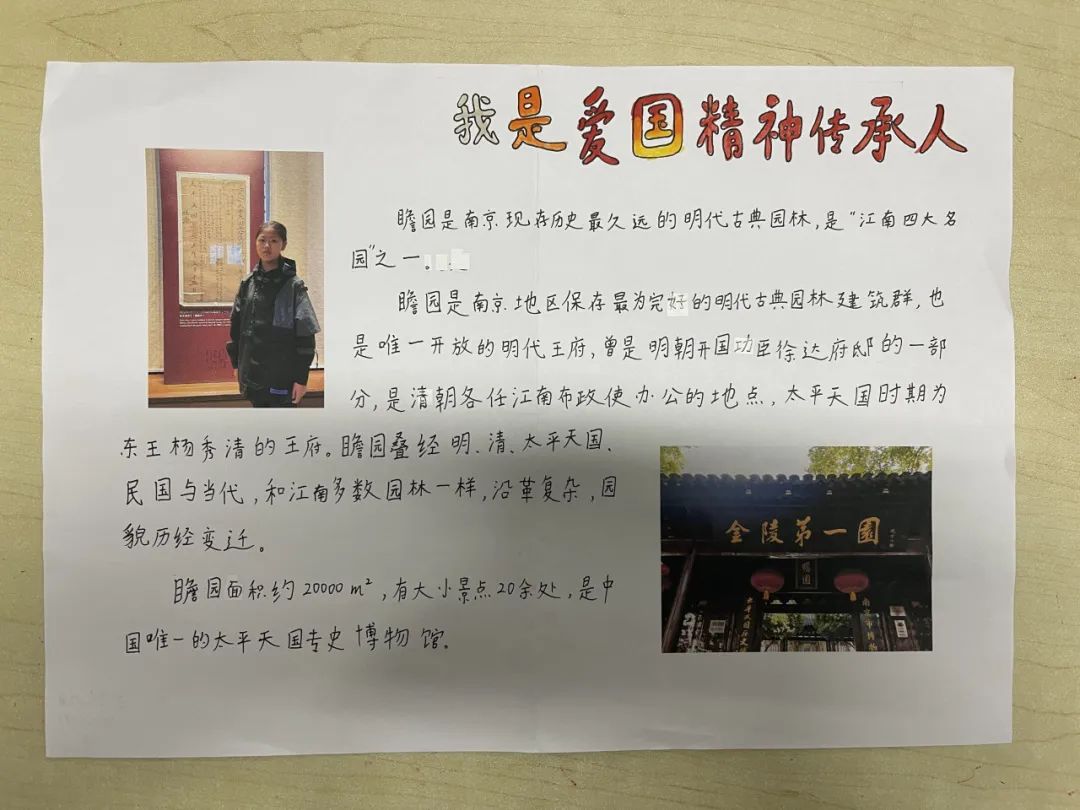 我是爱国精神传承人
瞻园是南京现存历史最久远的明代古典园林，是“江南四大名
园”之一。
瞻园是南京地区保存最为完好的明代古典园林建筑群，也
是唯一开放的明代王府，曾是明朝开国功臣徐达府邸的一部
分，是清朝各任江南布政使办公的地点，太平天国时期为
东王杨秀清的王府。瞻园叠经明、清、太平天国、
民国与当代，和江南多数园林一样，沿革复杂，园
貌历经变迁。
瞻园面积约20000m²，有大小景点20余处，是中
国唯一的太平天国专史博物馆。
金陵第一园
瞻园